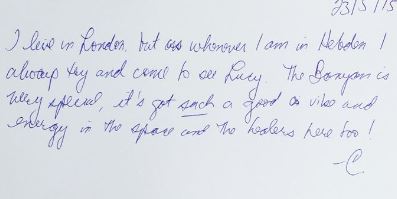 23/5/15
I live in London, but as whenever I am in Hebden I
always try and come to see Lucy. The Banyan is
very special, it's got such a good vibe and
energy in the space and the healers here too!
-C.